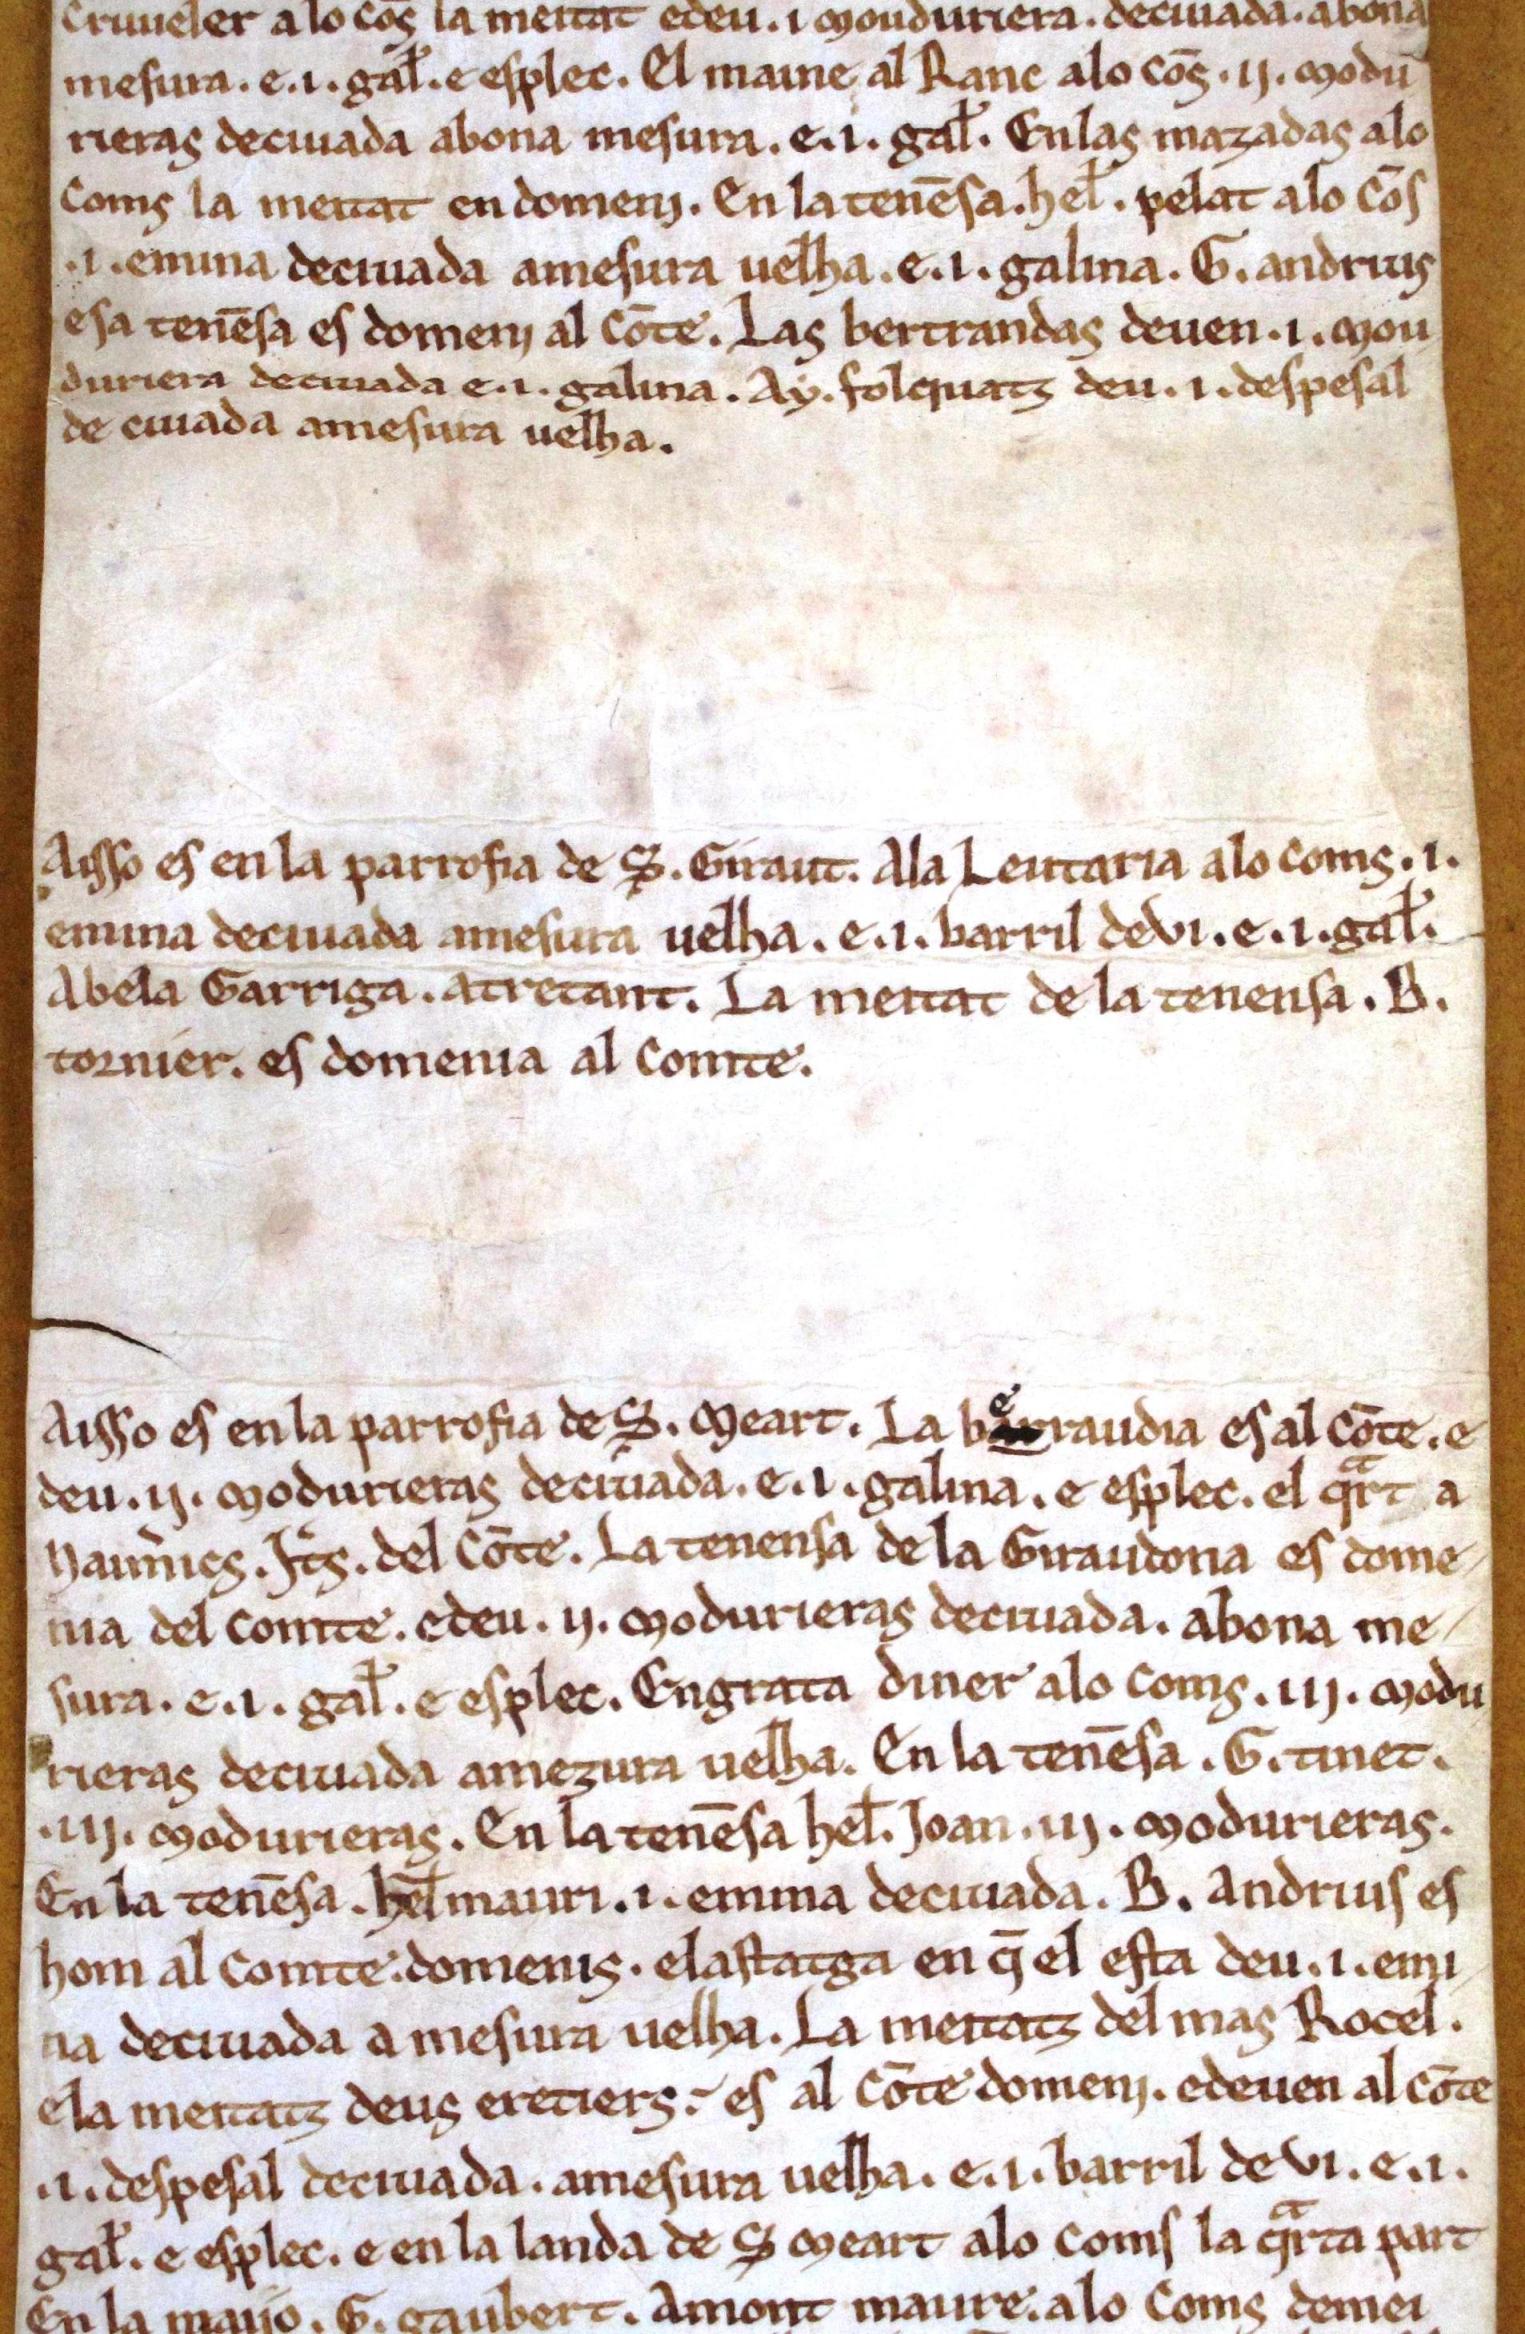 Cruueler a lo cōs la meitat edeu .i mouduriera . deciuada . abona
mesura . e .i. gal̃. e esplec. El maine al Ranc alo cōs .ij. modu
rieras deciuada abona mesura . e .i. gal̃. Enlas mazadas alo
Coms la meitat en domenj. En la tenēsa . hel̃. pelat alo Cōs
.i. emina deciuada amesura uelha . e .i. galina . G. andrius
esa tenēsa es domenj al Cōte. Las bertrandas deuen .i. mou
duriera deciuada e .i. galina . Ay. folquatz deu .i. despesal
de ciuada amesura uelha.
Aisso es en la parrofia de S. Giraut. Ala Leutaria alo coms .i.
emina deciuada amesura uelha . e .i. barril de vi . e .i. gal̃.
Abela Garriga . atretant. La meitat de la tenensa . B.
tornier. es domenia al Comte.
Aisso es en la parrofia de S. Meart. La berraudia es al Cōte . e
deu .ij. modurieras deciuada . e .i. galina . e esplec. el qᵃrt a
del Cōte. La tenensa de la Giraudona es dome
nia del Comte. edeu .ij. modurieras deciuada . abona me
sura . e .i. gal̃. e esplec. Engrata diner alo Coms .iij. modu
rieras deciuada amezura uelha. En la tenēsa . G. tinet.
.iij. modurieras. En la tenēsa hel̃. Joan .iij. modurieras.
En la tenēsa . hel̃ mauri .i. emina deciuada. B. Andrius es
hom al Comte . domenis . elastatga en q̄ el esta deu .i. emi
na deciuada a mesura uelha. La meitatz del mas Rocel.
ela meitatz deus eretiers: es al Cōte domenj. edeuen al Cōte
.i. despesal deciuada . amesura uelha. e .i. barril de vi . e .i.
gal̃. e esplec. e en la landa de S Meart alo Coms la qᵃrta part
En la maijo . G. gaubert. Amont maure. alo Coms demei